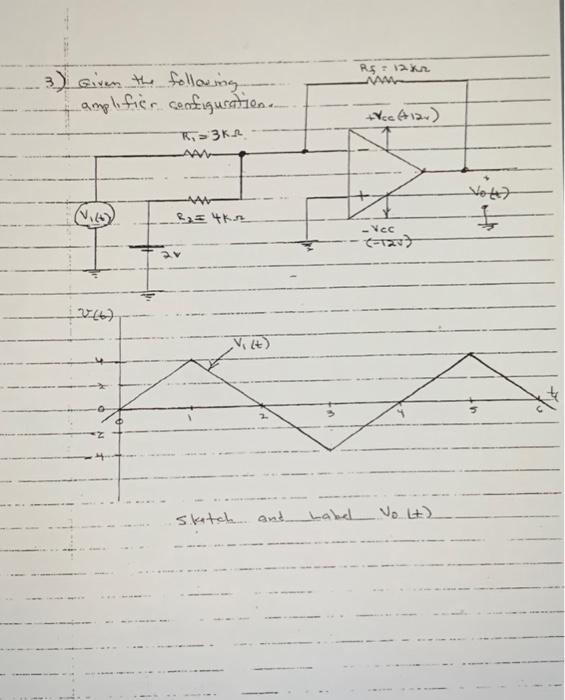 3) Given the following
amplifier configuration.
Rf = 12 kΩ
+Vcc (+12v)
R1 = 3KΩ
V1(t)
R2 = 4KΩ
2v
+
-Vcc
(-12v)
+
Vo(t)
-
v(t)
V1(t)
4
2
0
-2
-4
0 1 2 3 4 5 6 t
Sketch and Label Vo(t)